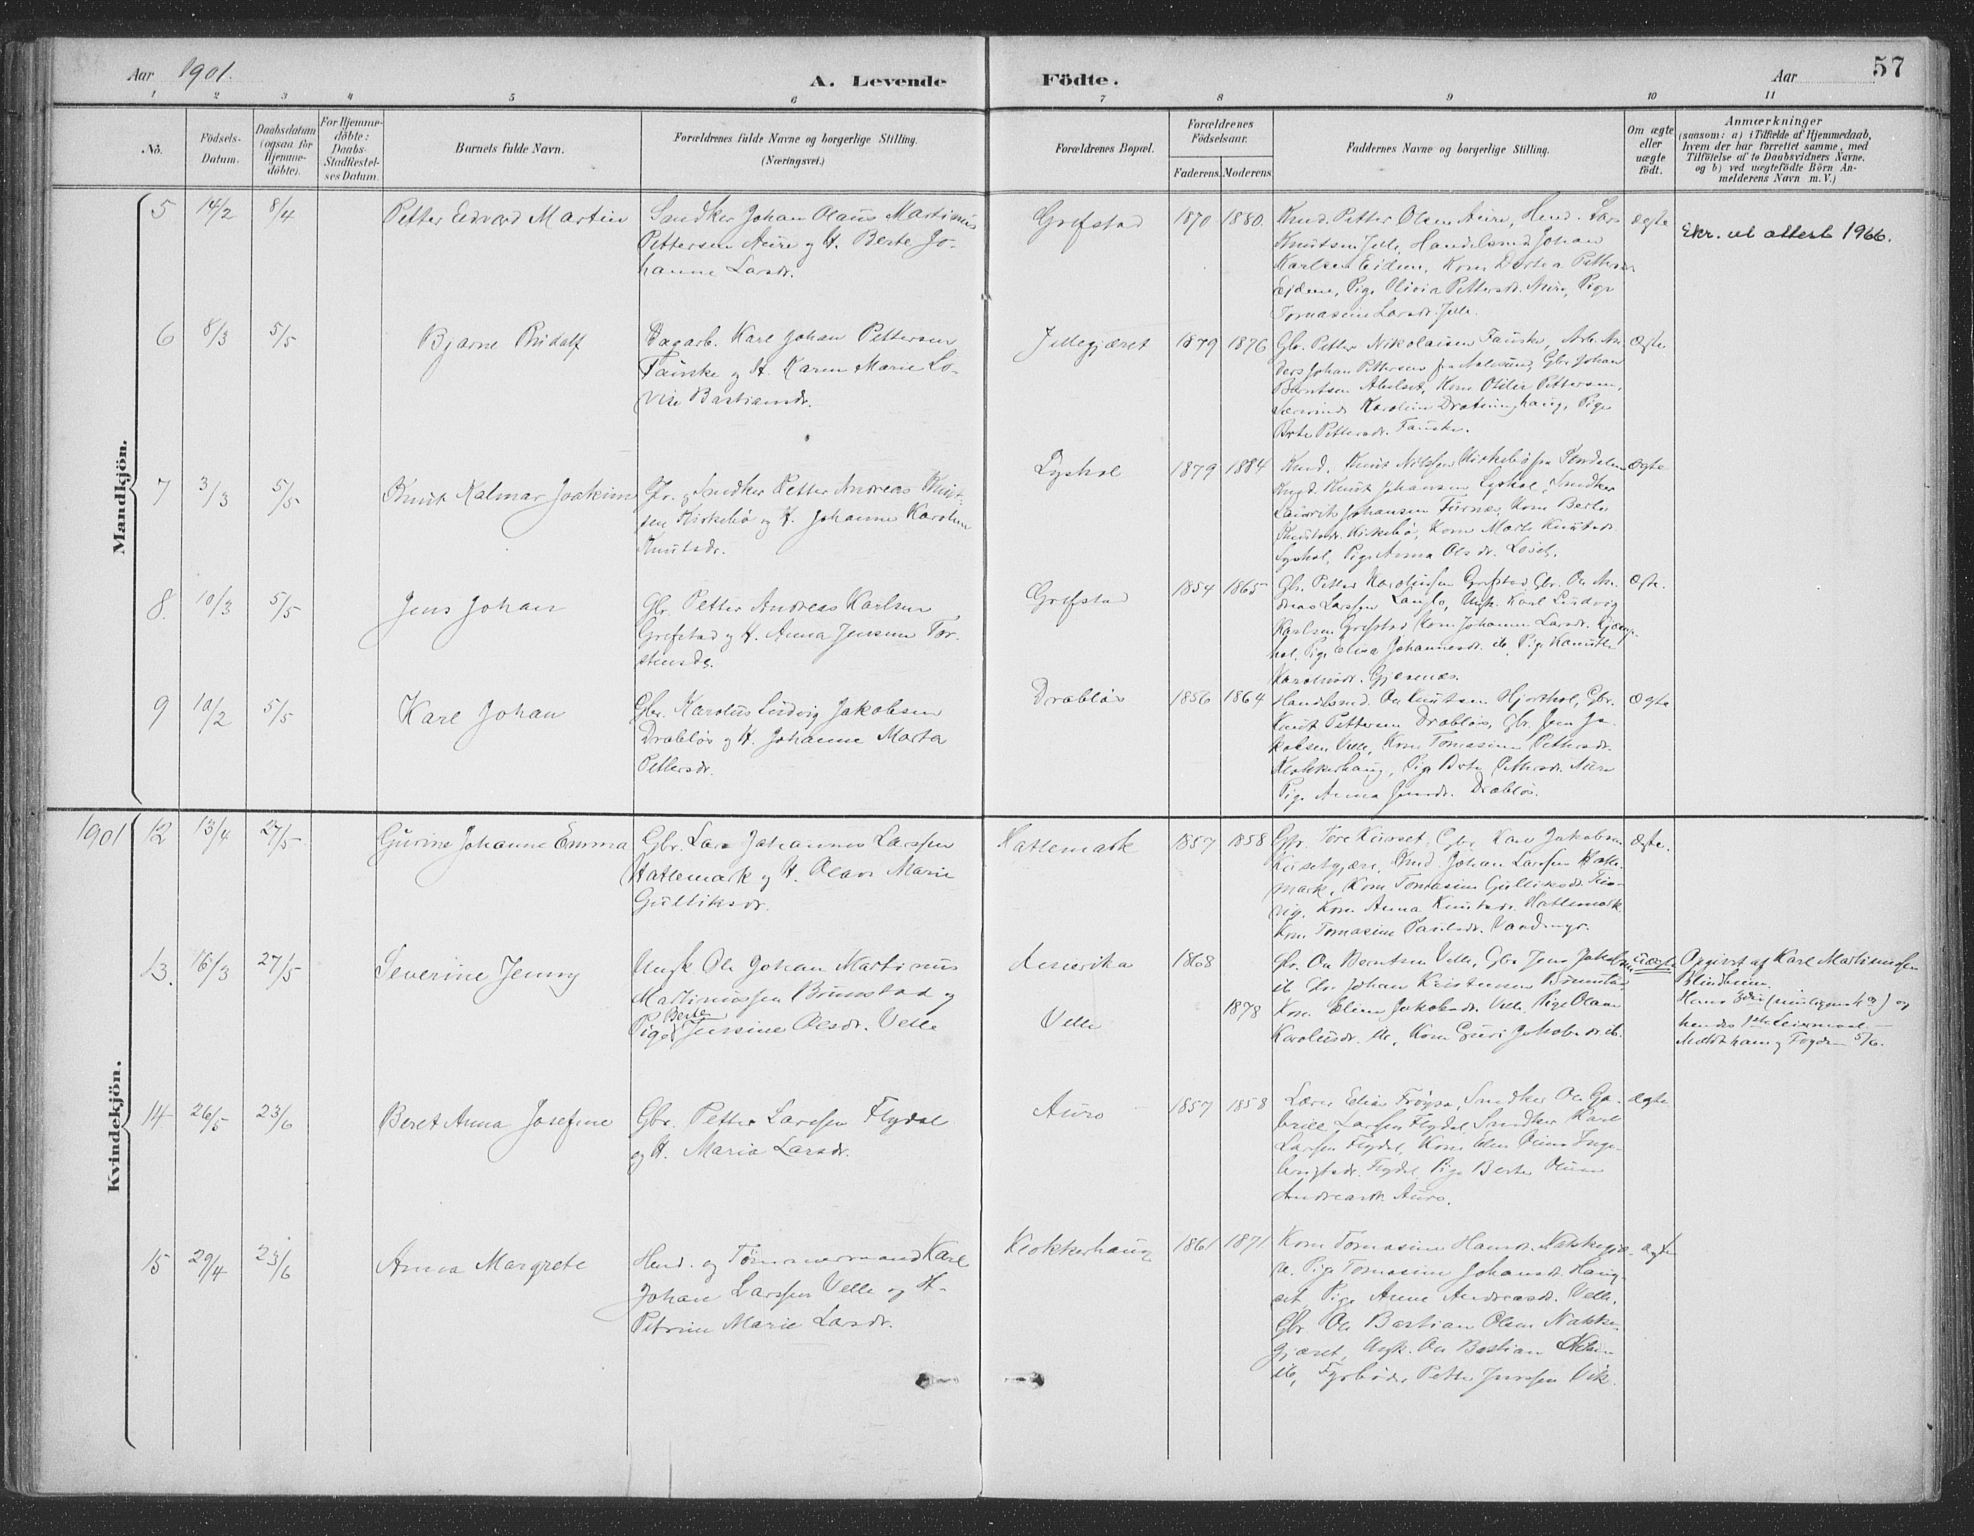 57
Aar 1901.
A. Levende Födte.
Aar
1 2 3 4 5 6 7 8 9 10 11
No.
Födsels-
Datum.
Daabsdatum
(ogsaa for
Hjemme-
döbte).
For Hjemme-
döbte:
Daabs-
Stadfæstel-
ses Datum.
Barnets fulde Navn.
Forældrenes fulde Navne og borgerlige Stilling.
(Næringsvei.)
Forældrenes Bopæl.
Forældrenes
Födselsaar.
Faderens. Moderens.
Faddernes Navne og borgerlige Stilling.
Om ægte
eller
uægte
födt.
Anmærkninger
(saasom: a) i Tilfælde af Hjemmedaab,
hvem der har forrettet samme, med
Tilföielse af to Daabsvidners Navne.
og b) ved uægtefödte Börn An-
melderens Navn m. V.)
Mandkjön.
5 14/2 8/4 Petter Edvard Martin
Smdker Johan Olaus Martinus
Pettersen Aure og H. Berte Jo-
hanne Larsdr.
Grefstad 1870 1880.
Knud Petter Olsen Aure, Hmd. Lars
Knutsen Jelle, Handelsmd Johan
Karlsen Eidem, Kone Dortea Petters
Eidem, Pige Olivia Pettersdr. Aure, Pige
Tomasine Larsdr. Jelle.
ægte
Ekr. ut attest 1966.
6 8/3 5/5 Bjarne Rudolf
Dagarb. Karl Johan Pettersen
Fauske og H. Karen Marie Lo-
vise Bastiansdr.
Jellegjæret 1879 1876
Gbr. Petter Nikolaisen Fauske, Arb. An-
ders Johan Pettersen fra Aalesund, Gbr. Johan
Berntsen Abelset, Kone Otilie Pettersen,
Karoline Dratninghaug, Pige
Berte Pettersdr. Fauske.
Ægte.
7 3/3 5/5 Knut Kalmar Joakim
Fr. og Smdker Petter Andreas Knut-
sen Kirkebø og H. Johanne Karoline
Knutsdr.
Lyshol 1879 1884
Kmd. Knut Nilssen Kirkebø fra Stordalen
Ungd. Knut Johansen Lyshol, Smdker
Laurits Johansen Furnes, Kone Berte
Knutsdr. Kirkebø, Kone Marte Knutsdr.
Lyshol, Pige Anna Olsdr.
ægte
8. 10/3 5/5 Jens Johan
Gbr. Petter Andreas Karlsen
Grefstad og H. Anna Jensine Tor-
stensdr.
Grefstad 1854 1865
Gbr. Petter Karolussen Grefstad Gbr. Ole An-
dreas Larssen Langlo, Ungk. Karl Ludvig
Karlsen Grefstad Kone Johanne Larsdr.
hol. Pige Elisa Johannesdr. ib. Pige
Karolusdr. Gjæsnæs.
Ægte.
9 10/2 5/5 Karl Johan
Gbr. Karolus Ludvig Jakobsen
Drabløs og H. Johanne Marta
Pettersdr.
Drabløs 1856 1864
Handelsmd. Ole Knutsen Hjorthol, Gbr.
Knut Pettersen Drabløs, Gbr. Jens Ja-
kobsen Velle, Kone Tomasine Pettersdr.
Klokkerhaug, Pige Berte Pettersdr. Aure
Pige Anna Jensdr. Drabløs.
Ægte
Kvindekjön.
1901 12 13/4 27/5 Gurine Johanne Emma
Gbr. Lars Johannes Larssen
Hatlemark og H. Olave Marie
Gulliksdr.
Hatlemark 1857 1858
Tore Kurset, Gbr. Karl Jakobsen
Kursetgjære, Kmd. Johan Larssen Hatle-
mark, Kone Tomasine Gulliksdr.
vig. Kone Anna Knutsdr. Hatlemark
Kone Tomasine Paulsdr.
Ægte.
13. 16/3 27/5 Severine Jenny
Ungk Ole Johan Martinus
Martinussen Brunstad og
Berte
Pige Jensine Olsdr. Velle
Amerika
Velle
1868
1878
Gbr. Ole Berntsen Velle, Gbr. Jens Jakobsen
ib Johan Kristensen Brunstad
Kone Eline Jakobsdr. Velle Pige Olave
Karolusdr. ib, Kone Guri Jakobsdr. ib.
Uægte
Opgivet af Karl Martinussen
Blindheim.
Hans og
hendes 1ste Leiermaal
Meldt ham og Fogden 5/6.
14 26/5 23/6 Beret Anna Josefine
Gbr. Petter Larssen Flydal
og H. Maria Larsdr.
Aure 1857 1858
Lærer Elias Frøysa, Smdker Ole Ga-
briel Larssen Flydal Smdker Karl
Larssen Flydal, Kone Elen Oline Inge-
brigtsdr. Flydal Pige Berte Oline
Andreasdr. Aure.
ægte
15 29/4 23/6 Anna Margrete
Hmd. og Tømmermand Karl
Johan Larssen Velle og H.
Petrine Marie Larsdr.
Klokkerhaug 1861 1871
Kone Tomasine Hansdr.
Pige Tomasine Johansdr. Haug-
set, Pige Anne Andreasdr. Velle,
Gbr Ole Bastian Olsen Nakke-
gjæret, Ungk. Ole Bastian
ib, Fyrbøder Petter Jenssen Vik.
ægte